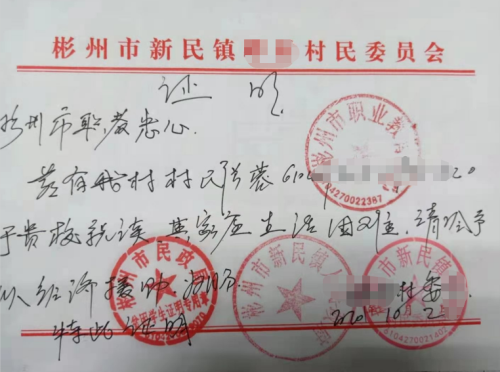 彬州市新民镇 村民委员会
证明
彬州市职教忠心.
兹有 村村民张蓉610 20
于贵校就读,其家庭生活困难,请给予
以经济援助 为盼
特此证明
村委
10.2
彬州市职业教
04270022387
彬州市民政
学生证明专用章
彬州市新民镇人
彬州市新民镇